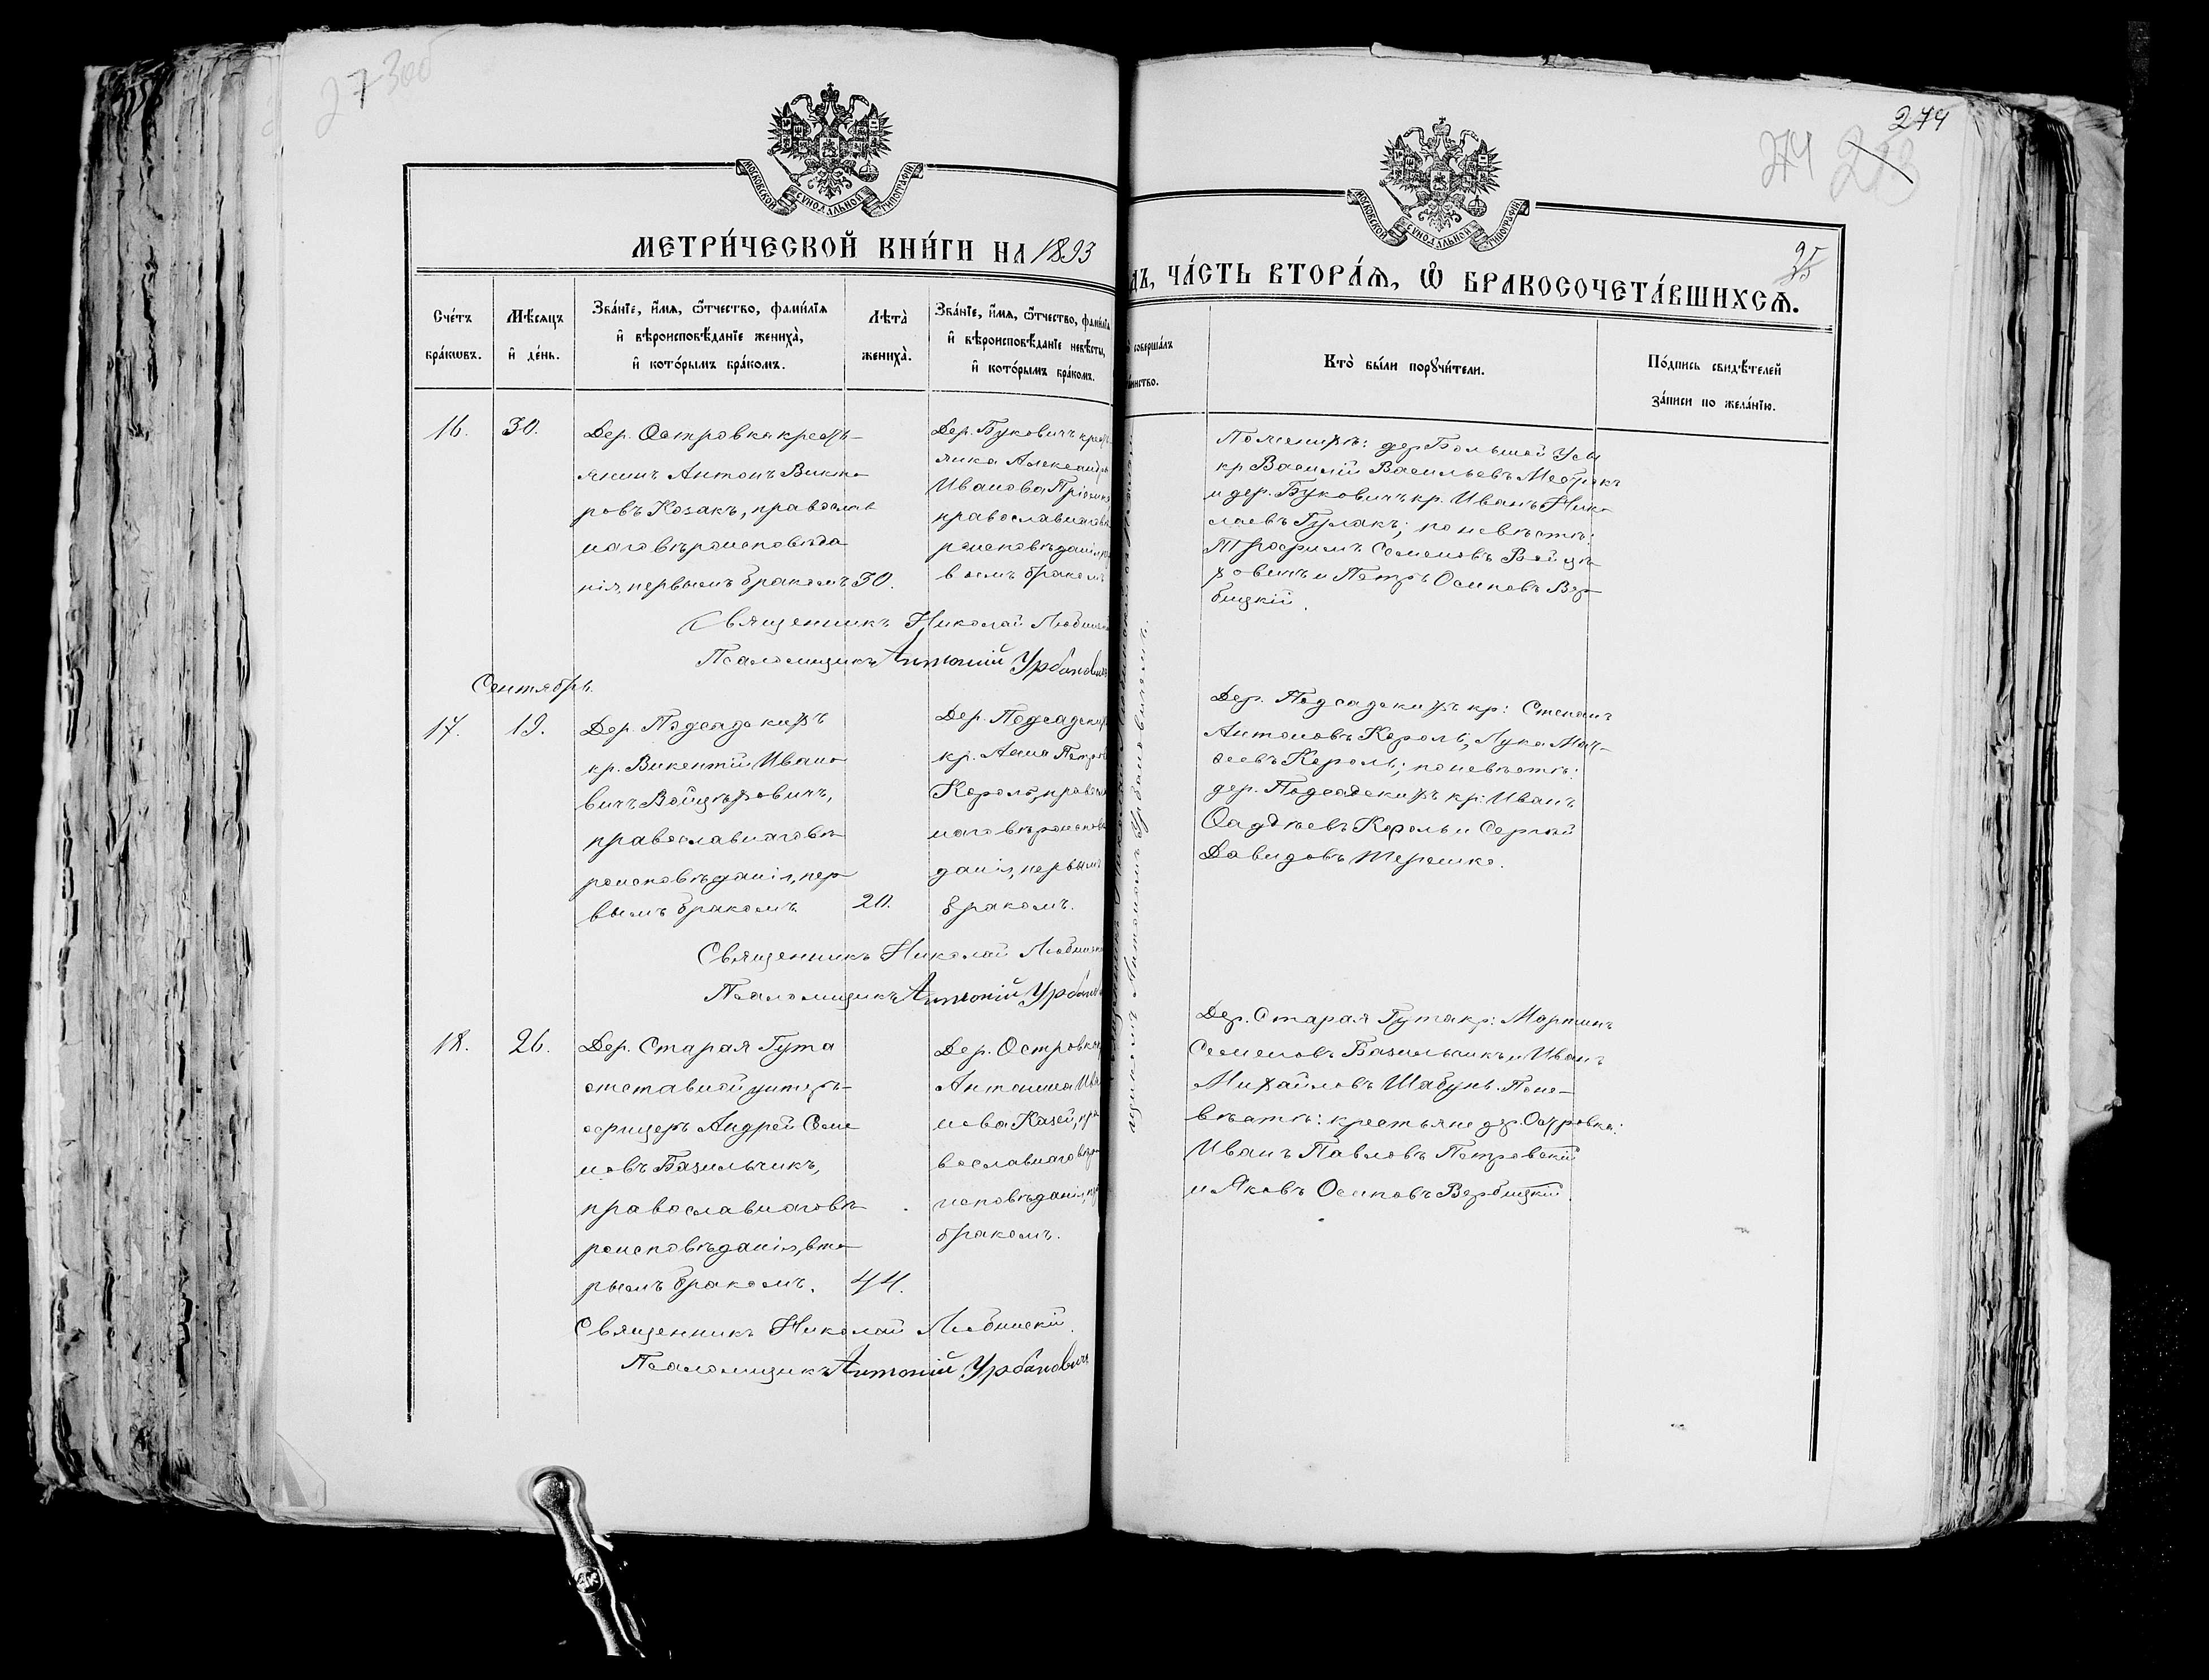 273об
274
274 273
МОСКОВСКОЙ СѴНОДАЛЬНОЙ ТИПОГРАФІИ
МОСКОВСКОЙ СѴНОДАЛЬНОЙ ТИПОГРАФІИ
МЕТРИ́ЧЕСКОЙ КНИ́ГИ НА 1893
ДЪ, ЧА́СТЬ ВТОРА́Ѧ, Ѡ҆ БРАКОСОЧЕТА́ВШИХСѦ.
25
Сче́тъ бра́кѡвъ.
Мѣ́сѧцъ и҆ де́нь.
Зва́нїе, и҆́мѧ, ѻ҆́тчество, фами́лїѧ
и҆ вѣроисповѣ́данїе жениха̀,
и҆ кото́рымъ бра́комъ.
Лѣта̀ жениха̀.
Зва́нїе, и҆́мѧ, ѻ҆́тчество, фами́лїѧ
и҆ вѣроисповѣ́данїе невѣ́сты,
и҆ кото́рымъ бра́комъ.
совершалъ
Кто̀ бы́ли порꙋчи́тели.
По́дпись свидѣ́телей
за́писи по жела́нїю.
16.
30.
Дер. Островка кресть-
янинъ Антонъ Викто-
ровъ Козакъ, православ
наго вѣроисповѣда
нія, первымъ бракомъ 30.
Дер. Буковичъ крест
янка Александр
Иванова
православнаго вѣ
роисповѣданія
вомъ бракомъ
По женихѣ: дер. Большой Усы
кр Василій Васильевъ
и дер. Буковичъ кр. Иванъ Нико
лаевъ Гулакъ; по невѣстѣ:
Трофимъ Семеновъ Войцѣ
ховичъ и Петръ Осиповъ Вер
бицкій.
Священникъ Николай Любинскій
Псаломщикъ Антоній Урбанович
Сентябрь.
17.
19.
Дер. Подсадскихъ
кр. Викентій Ивано
вичъ Войцѣховичъ,
православнаго вѣ
роисповѣданія, пер
вымъ бракомъ 20.
Дер. Подсадских
кр. Анна Петров
Король, правосл
наго вѣроисповѣ
данія, первымъ
бракомъ.
Дер. Подсадскихъ кр: Степанъ
Антоновъ Король, Лука Мат-
веевъ Король; по невѣстѣ:
дер. Подсадскихъ кр: Иванъ
Ѳаддѣевъ Король и Сергѣй
Давидовъ Терешко.
Священникъ Николай Любинск
Псаломщикъ Антоній Урбанов
18.
26.
Дер. Старая Гута
отставной унтеръ-
офицеръ Андрей Семе
новъ Базильчикъ,
православнаго вѣ
роисповѣданія, вто
рымъ бракомъ. 44.
Дер. Островка
Антонина Ива
нова Казей, пра
вославнаго вѣро
исповѣданія, пер
бракомъ.
Дер. Старая Гута кр: Мартинъ
Семеновъ Базильчикъ и Иванъ
Михайловъ Шабунь. По не-
вѣстѣ: крестьяне дер. Островка:
Иванъ Павловъ Петровскій
и Яковъ Осиповъ Вербицкій.
Священникъ Николай Любинскій.
Псаломщикъ Антоній Урбановичъ
щикомъ Антоніемъ Урбановичемъ.